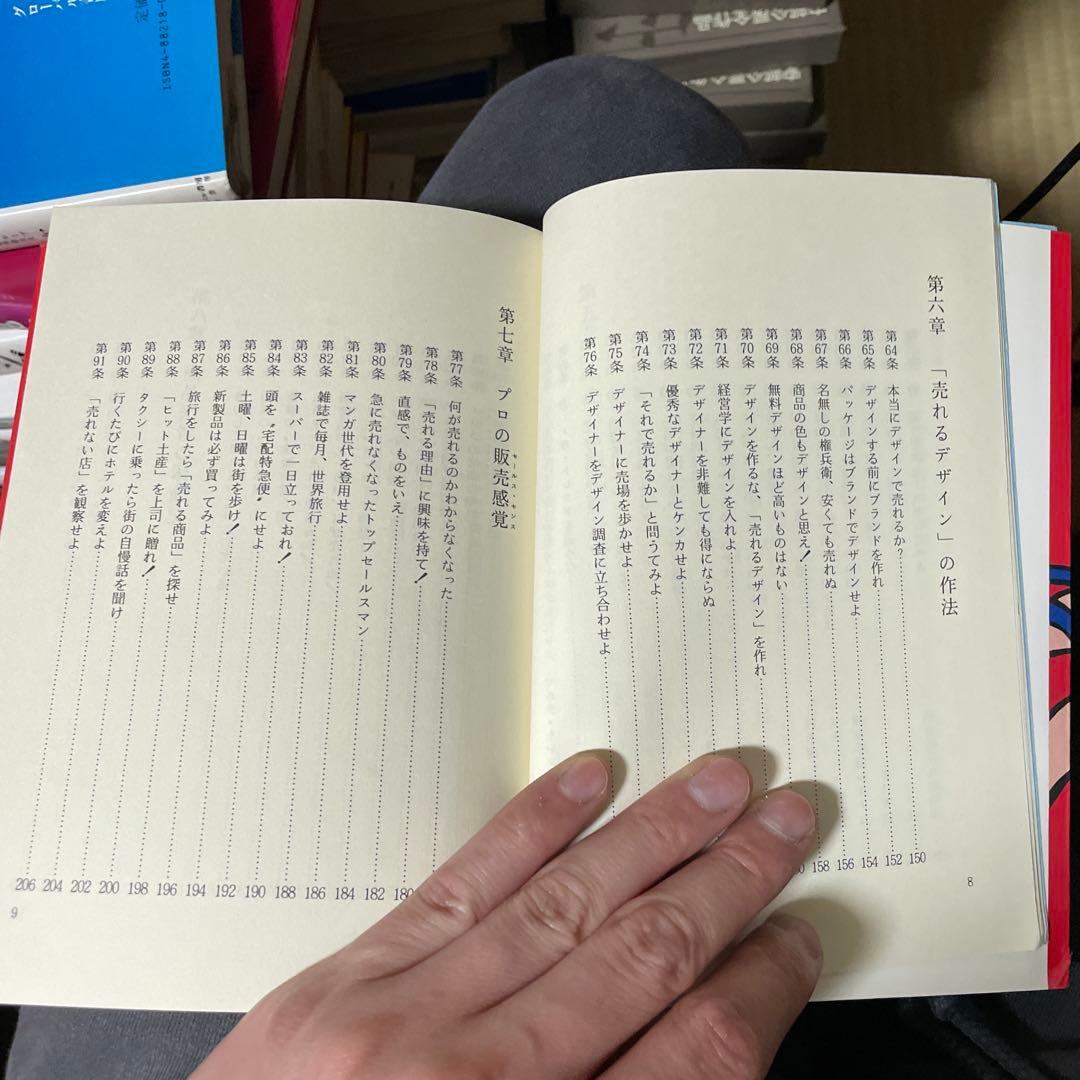 第六章 「売れるデザイン」の作法
第64条 本当にデザインで売れるか? 150
第65条 デザインする前にブランドを作れ 152
第66条 パッケージはブランドでデザインせよ 154
第67条 名無しの権兵衛、安くても売れぬ 156
第68条 商品の色もデザインと思え! 158
第69条 無料デザインほど高いものはない
第70条 デザインを作るな、「売れるデザイン」を作れ
第71条 経営学にデザインを入れよ
第72条 デザイナーを非難しても得にならぬ
第73条 優秀なデザイナーとケンカせよ
第74条 「それで売れるか」と問うてみよ
第75条 デザイナーに売場を歩かせよ
第76条 デザイナーをデザイン調査に立ち合わせよ
8
第七章 プロの販売感覚
セールス・センス
第77条 何が売れるのかわからなくなった
第78条 「売れる理由」に興味を持て!
第79条 直感で、ものをいえ
第80条 急に売れなくなったトップセールスマン 182
第81条 マンガ世代を登用せよ 184
第82条 雑誌で毎月、世界旅行 186
第83条 スーパーで一日立っておれ! 188
第84条 頭を〝宅配特急便〟にせよ 190
第85条 土曜、日曜は街を歩け! 192
第86条 新製品は必ず買ってみよ 194
第87条 旅行をしたら「売れる商品」を探せ 196
第88条 「ヒット土産」を上司に贈れ! 198
第89条 タクシーに乗ったら街の自慢話を聞け 200
第90条 行くたびにホテルを変えよ 202
第91条 「売れない店」を観察せよ 204
206
9
定価
ISBN4-88218-